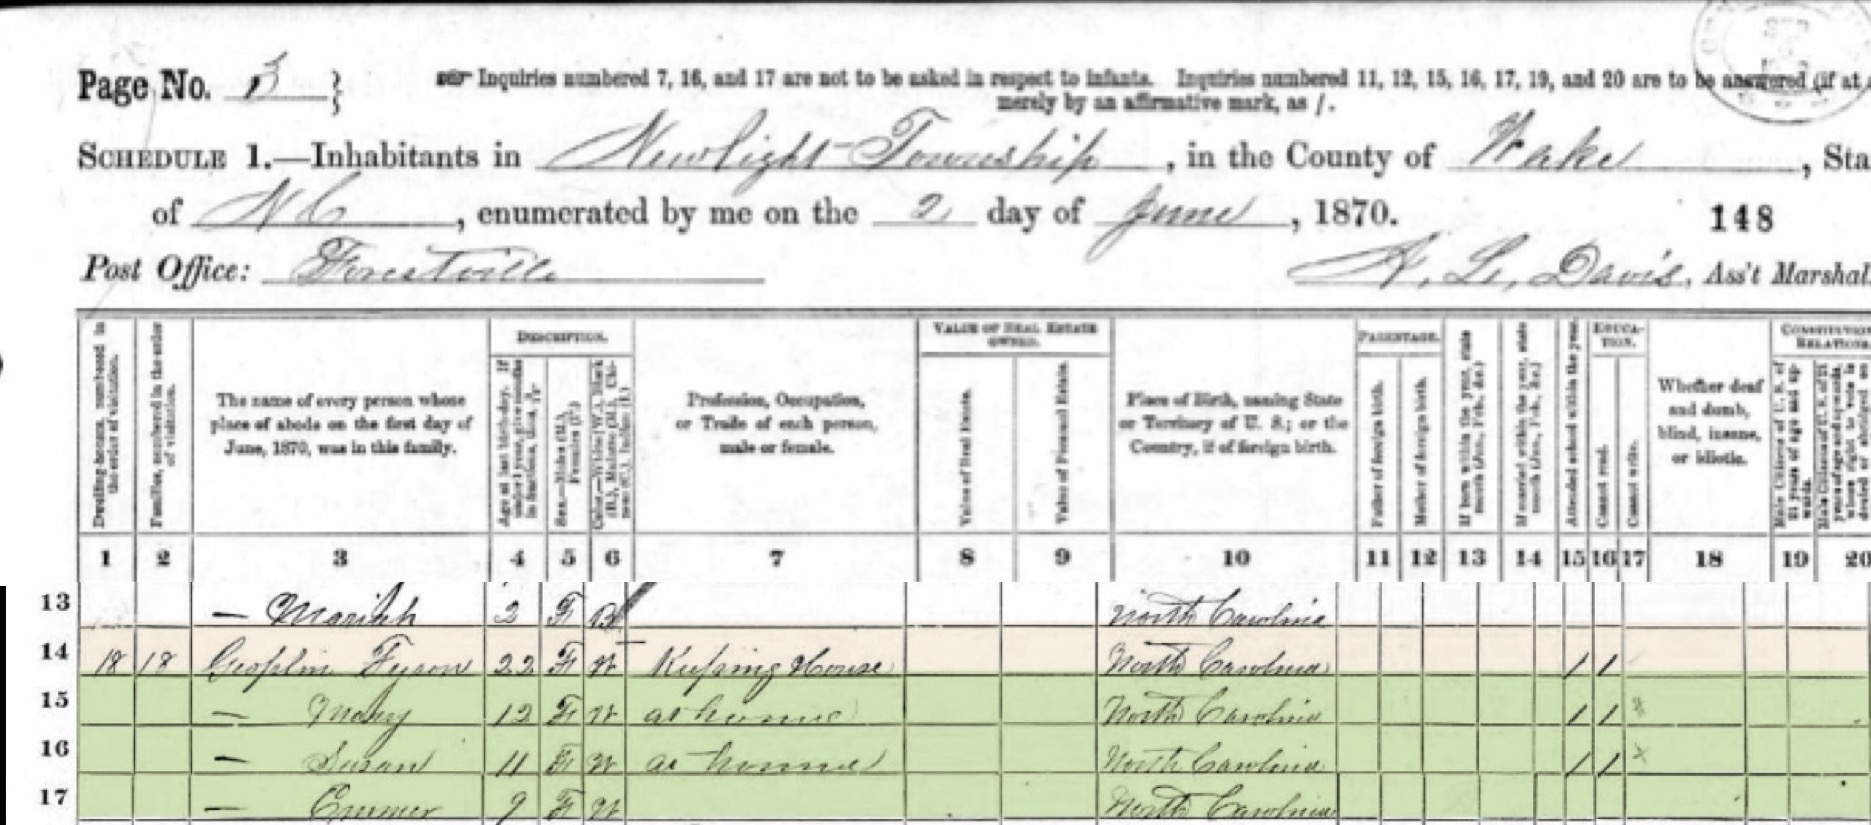 Page No. 3 }
Inquiries numbered 7, 16, and 17 are not to be asked in respect to infants. Inquiries numbered 11, 12, 15, 16, 17, 19, and 20 are to be answered (if at
merely by an affirmative mark, as /.
SCHEDULE 1.—Inhabitants in Newlight Township, in the County of Wake, Sta
of N C, enumerated by me on the 2 day of June, 1870.
148
Post Office: Forestville
A. L. Davis, Ass't Marshal.
Dwelling-houses, numbered in the order of visitation.
Families, numbered in the order of visitation.
The name of every person whose place of abode on the first day of June, 1870, was in this family.
DESCRIPTION.
Age at last birth-day. If under 1 year, give months in fractions, thus,
Sex.—Males (M.), Females (F.)
Color.—White (W.), Black (B.), Mulatto (M.), Chinese (C.), Indian (I.)
Profession, Occupation, or Trade of each person, male or female.
VALUE OF REAL ESTATE OWNED.
Value of Real Estate.
Value of Personal Estate.
Place of Birth, naming State or Territory of U. S.; or the Country, if of foreign birth.
PARENTAGE.
Father of foreign birth.
Mother of foreign birth.
If born within the year, state month (Jan., Feb. &c.)
If married within the year, state month (Jan., Feb. &c.)
Attended school within the year.
EDUCATION.
Cannot read.
Cannot write.
Whether deaf and dumb, blind, insane, or idiotic.
CONSTITUTION RELATIONS
Male Citizens of U. S. of 21 years of age and upwards.
1 2 3 4 5 6 7 8 9 10 11 12 13 14 15 16 17 18 19 20
13 — Mariah 2 F B North Carolina
14 18 18 Tyson 22 F W Keeping House North Carolina / /
15 — Mary 12 F W at home North Carolina / /
16 — Susan 11 F W at home North Carolina / /
17 — Emmer 9 F W North Carolina